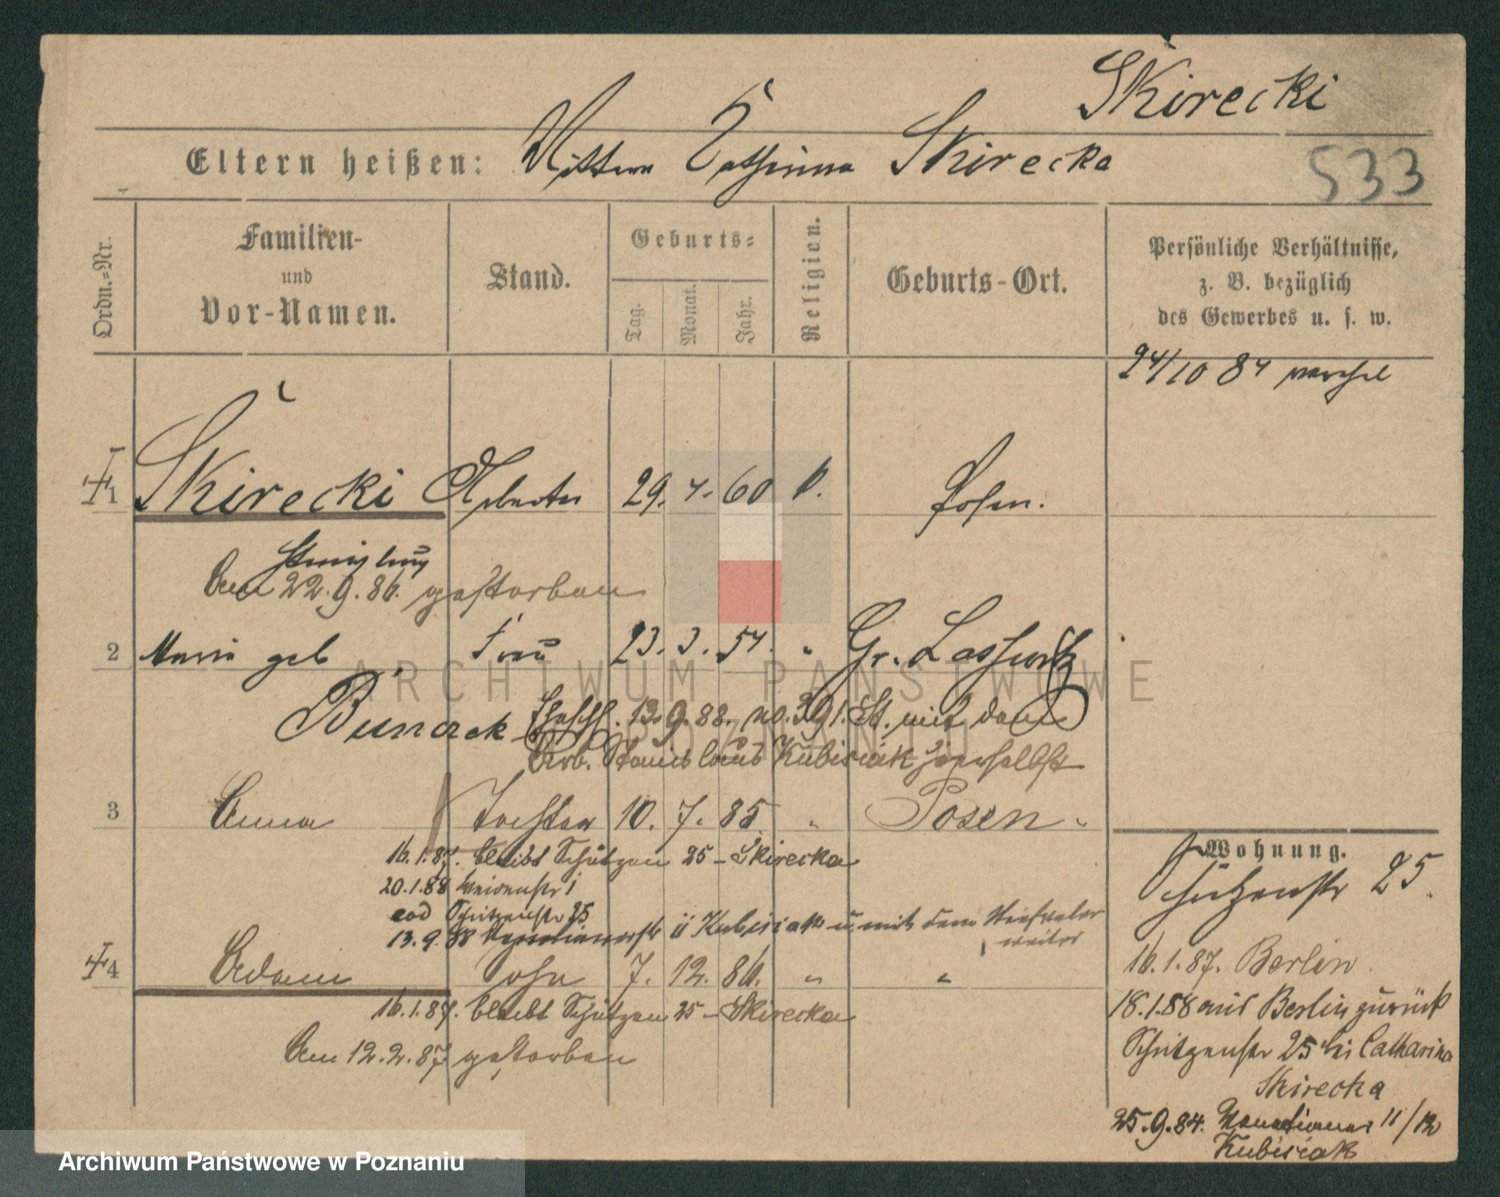 Skirecki
Eltern heißen: Mutter Catharina Skirecka
533
Ordn.=Nr.
Familien-
und
Vor-Namen.
Stand.
Geburts=
Tag.
Monat.
Jahr.
Religion.
Geburts-Ort.
Persönliche Verhältnisse,
z. B. bezüglich
des Gewerbes u. s. w.
24/10 84
1 Skirecki Arbeiter 29. 4. 60 k. Posen.
Stanislaus
Am 22.9.86. gestorben
2 Maria geb Frau 23. 3. 54. " Gr. Lassowitz
Bunarek Ehesch. 13.9.88. no. 391. St. mit dem
Arb. Stanislaus Kubisiak hierselbst
3 Anna Tochter 10. 7. 85 " Posen.
16.1.87. bleibt Schützen 25 - Skirecka
20.1.88
Schützenstr 25
13.9.88 Kubisiak u mit dem Stiefvater
weiter
4 Adam Sohn 7. 12. 86. " "
16.1.87. bleibt Schützen 25 - Skirecka
Am 12.2.87 gestorben
Wohnung.
Schützenstr 25.
16.1.87. Berlin.
18.1.88 aus Berlin zurück
Schützenstr 25 bei Catharina
Skirecka
25.9.84. 11/12
Kubisiak
ARCHIWUM PAŃSTWOWE
POZNANIU
Archiwum Państwowe w Poznaniu